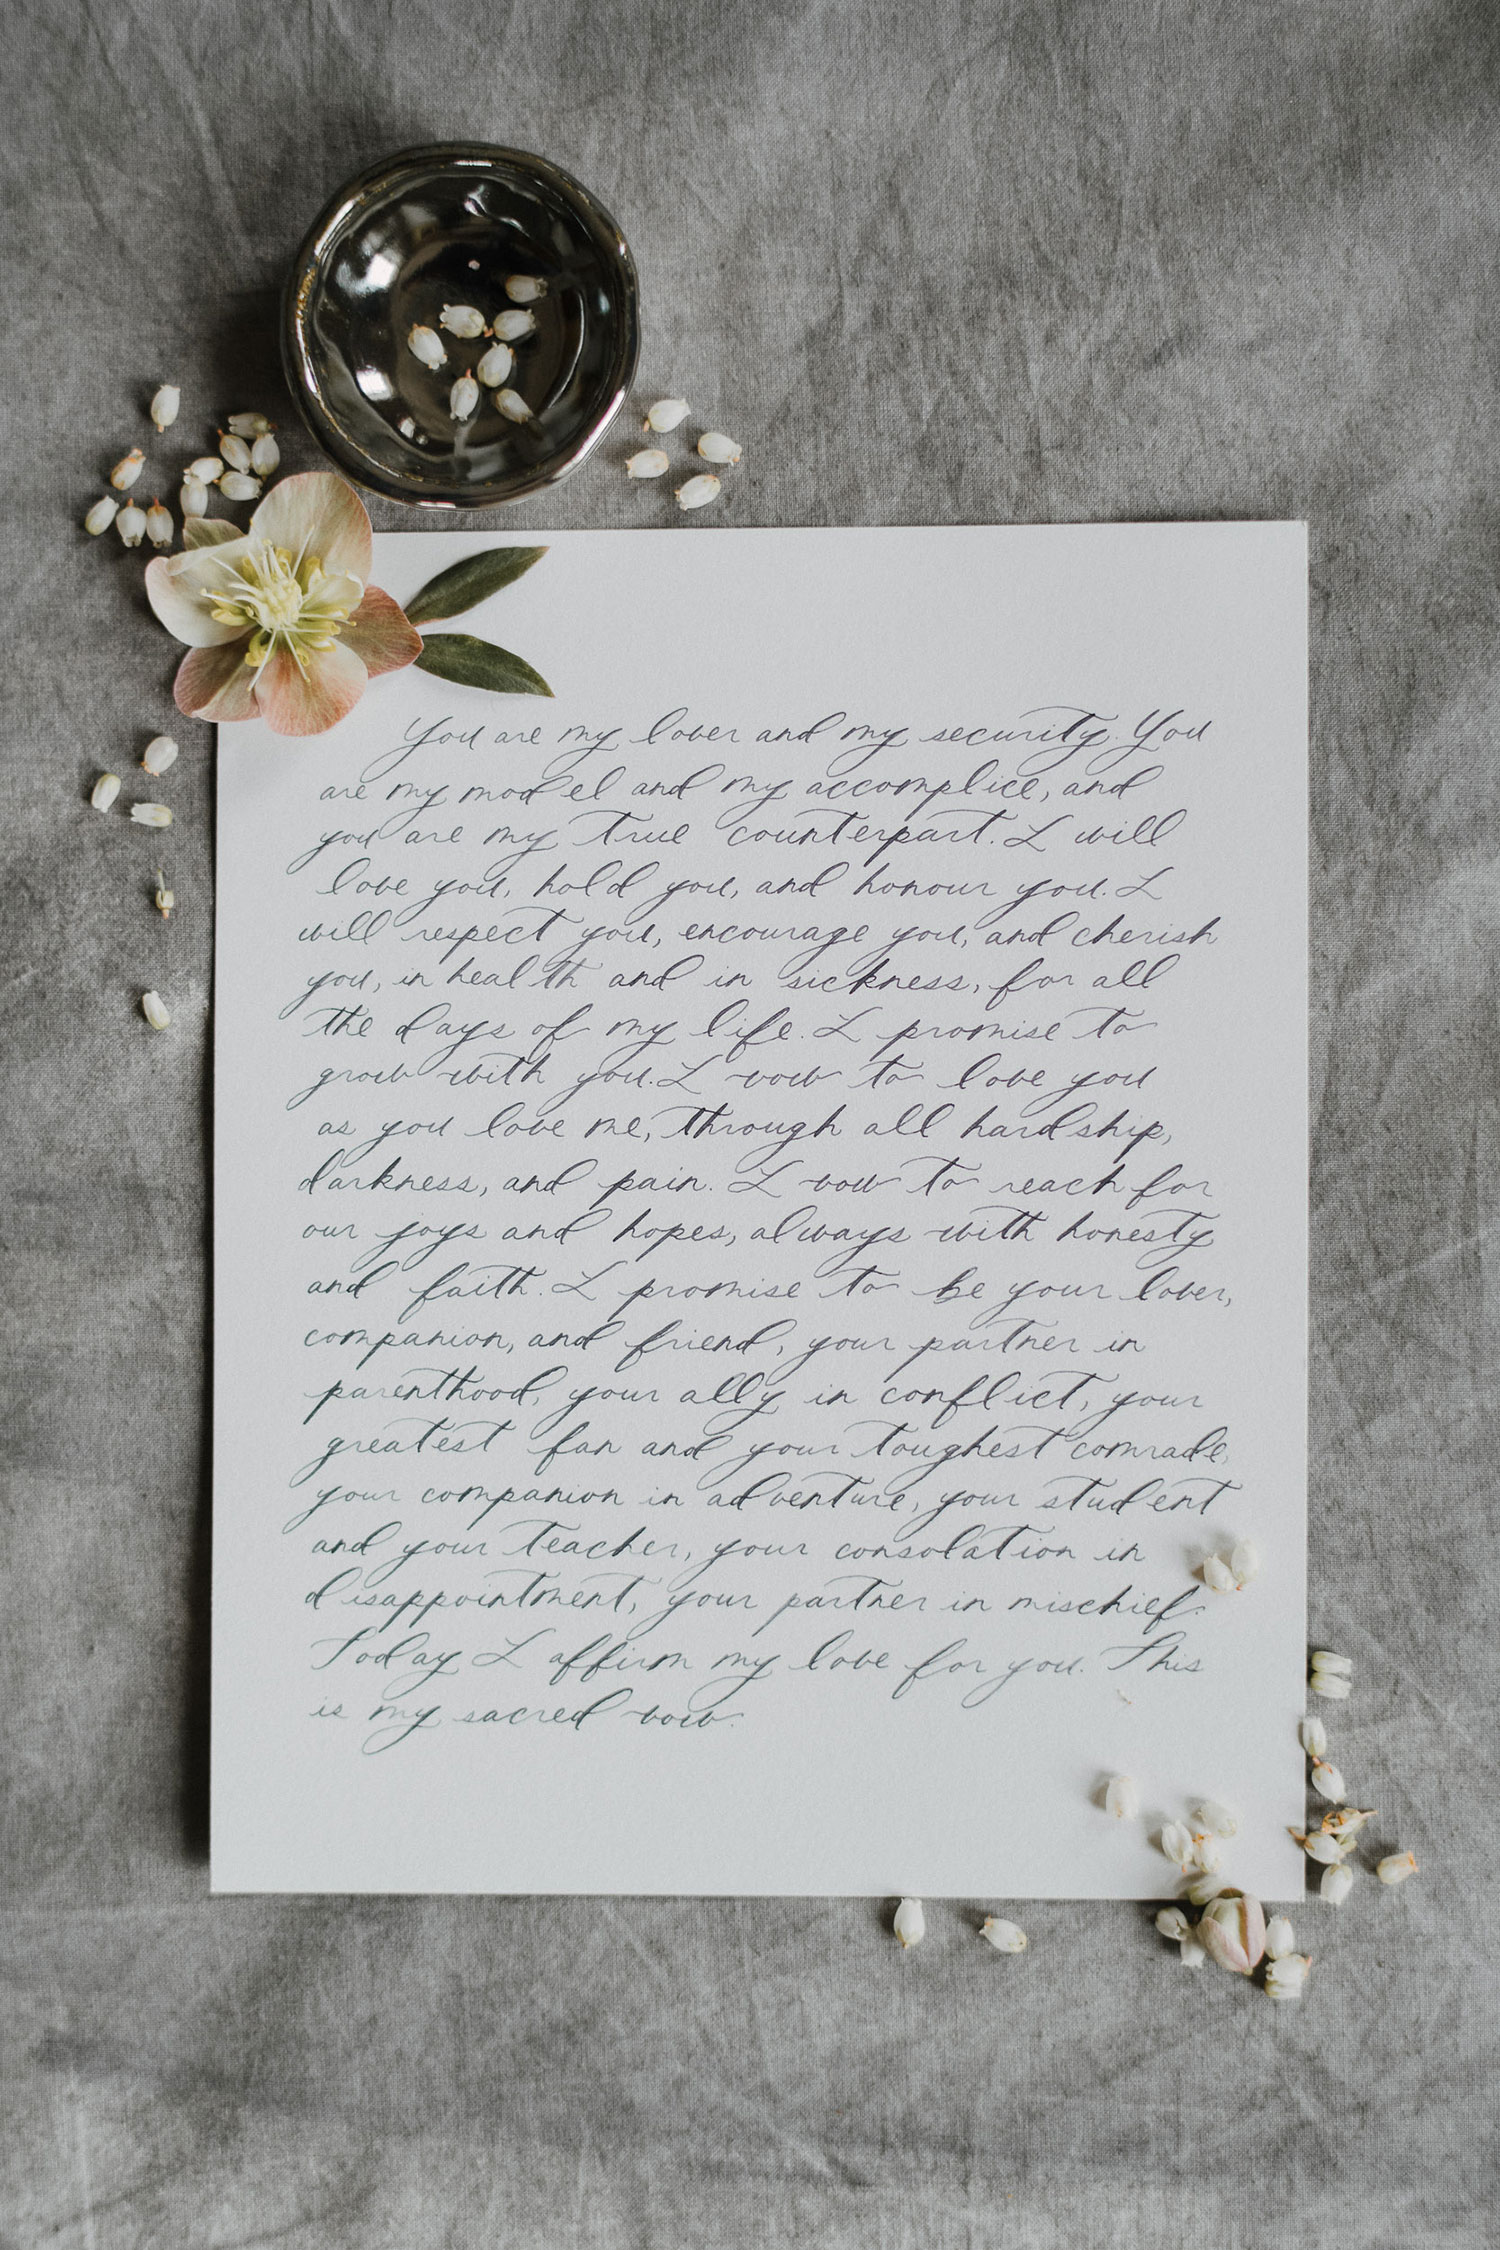 You are my lover and my security. You
are my model and my accomplice, and
you are my true counterpart. I will
love you, hold you, and honour you. I
will respect you, encourage you, and cherish
you, in health and in sickness, for all
the days of my life. I promise to
grow with you. I vow to love you
as you love me, through all hardship,
darkness, and pain. I vow to reach for
our joys and hopes, always with honesty
and faith. I promise to be your lover,
companion, and friend, your partner in
parenthood, your ally in conflict, your
greatest fan and your toughest comrade,
your companion in adventure, your student
and your teacher, your consolation in
disappointment, your partner in mischief.
Today I affirm my love for you. This
is my sacred vow.